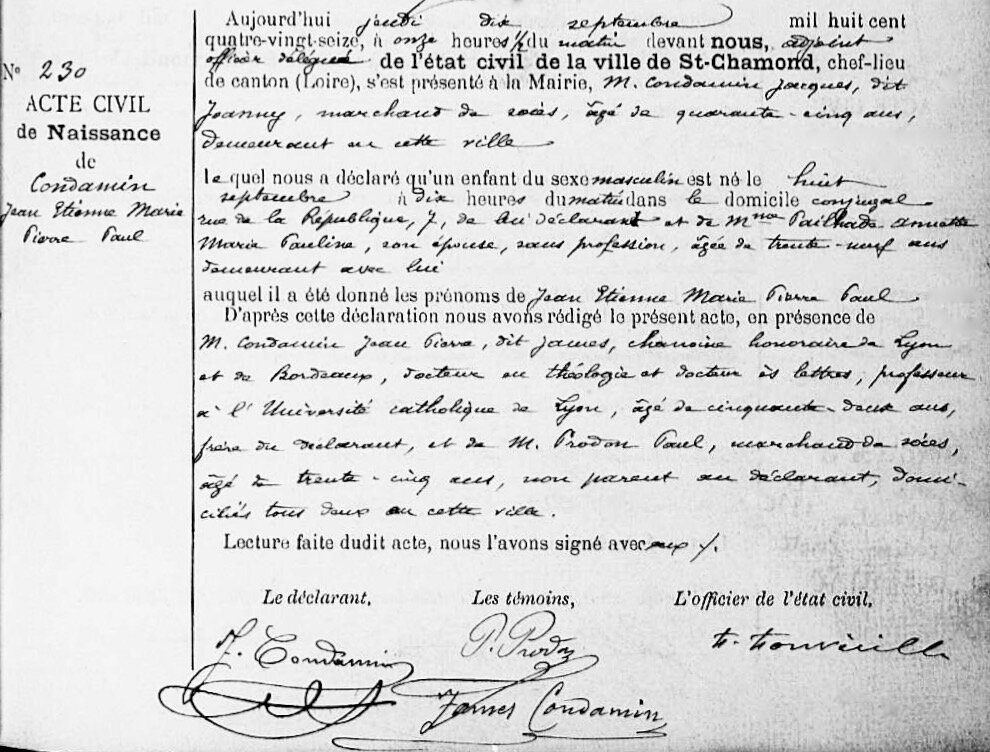 Nº 230
ACTE CIVIL
de Naissance
de
Condamin
Jean Etienne Marie
Pierre Paul
Aujourd'hui jeudi dix septembre mil huit cent
quatre-vingt-seize, à onze heures ½ du matin devant nous, adjoint
officier délégué de l'état civil de la ville de St-Chamond, chef-lieu
de canton (Loire), s'est présenté à la Mairie, M. Condamin Jacques, dit
Joanny, marchand de soies, âgé de quarante-cinq ans,
demeurant en cette ville
lequel nous a déclaré qu'un enfant du sexe masculin est né le huit
septembre à dix heures du matin dans le domicile conjugal
rue de la République, 7, de lui déclarant et de Mme Pailhade Annette
Marie Pauline, son épouse, sans profession, âgée de trente-neuf ans
demeurant avec lui
auquel il a été donné les prénoms de Jean Etienne Marie Pierre Paul
D'après cette déclaration nous avons rédigé le présent acte, en présence de
M. Condamin Jean Pierre, dit James, chanoine honoraire de Lyon
et de Bordeaux, docteur en théologie et docteur ès lettres, professeur
à l'Université catholique de Lyon, âgé de cinquante-deux ans,
frère du déclarant, et de M. Prodon Paul, marchand de soies,
âgé de trente-cinq ans, non parent au déclarant, domi-
ciliés tous deux en cette ville.
Lecture faite dudit acte, nous l'avons signé avec eux
Le déclarant, Les témoins, L'officier de l'état civil,
J. Condamin P. Prodon
James Condamin